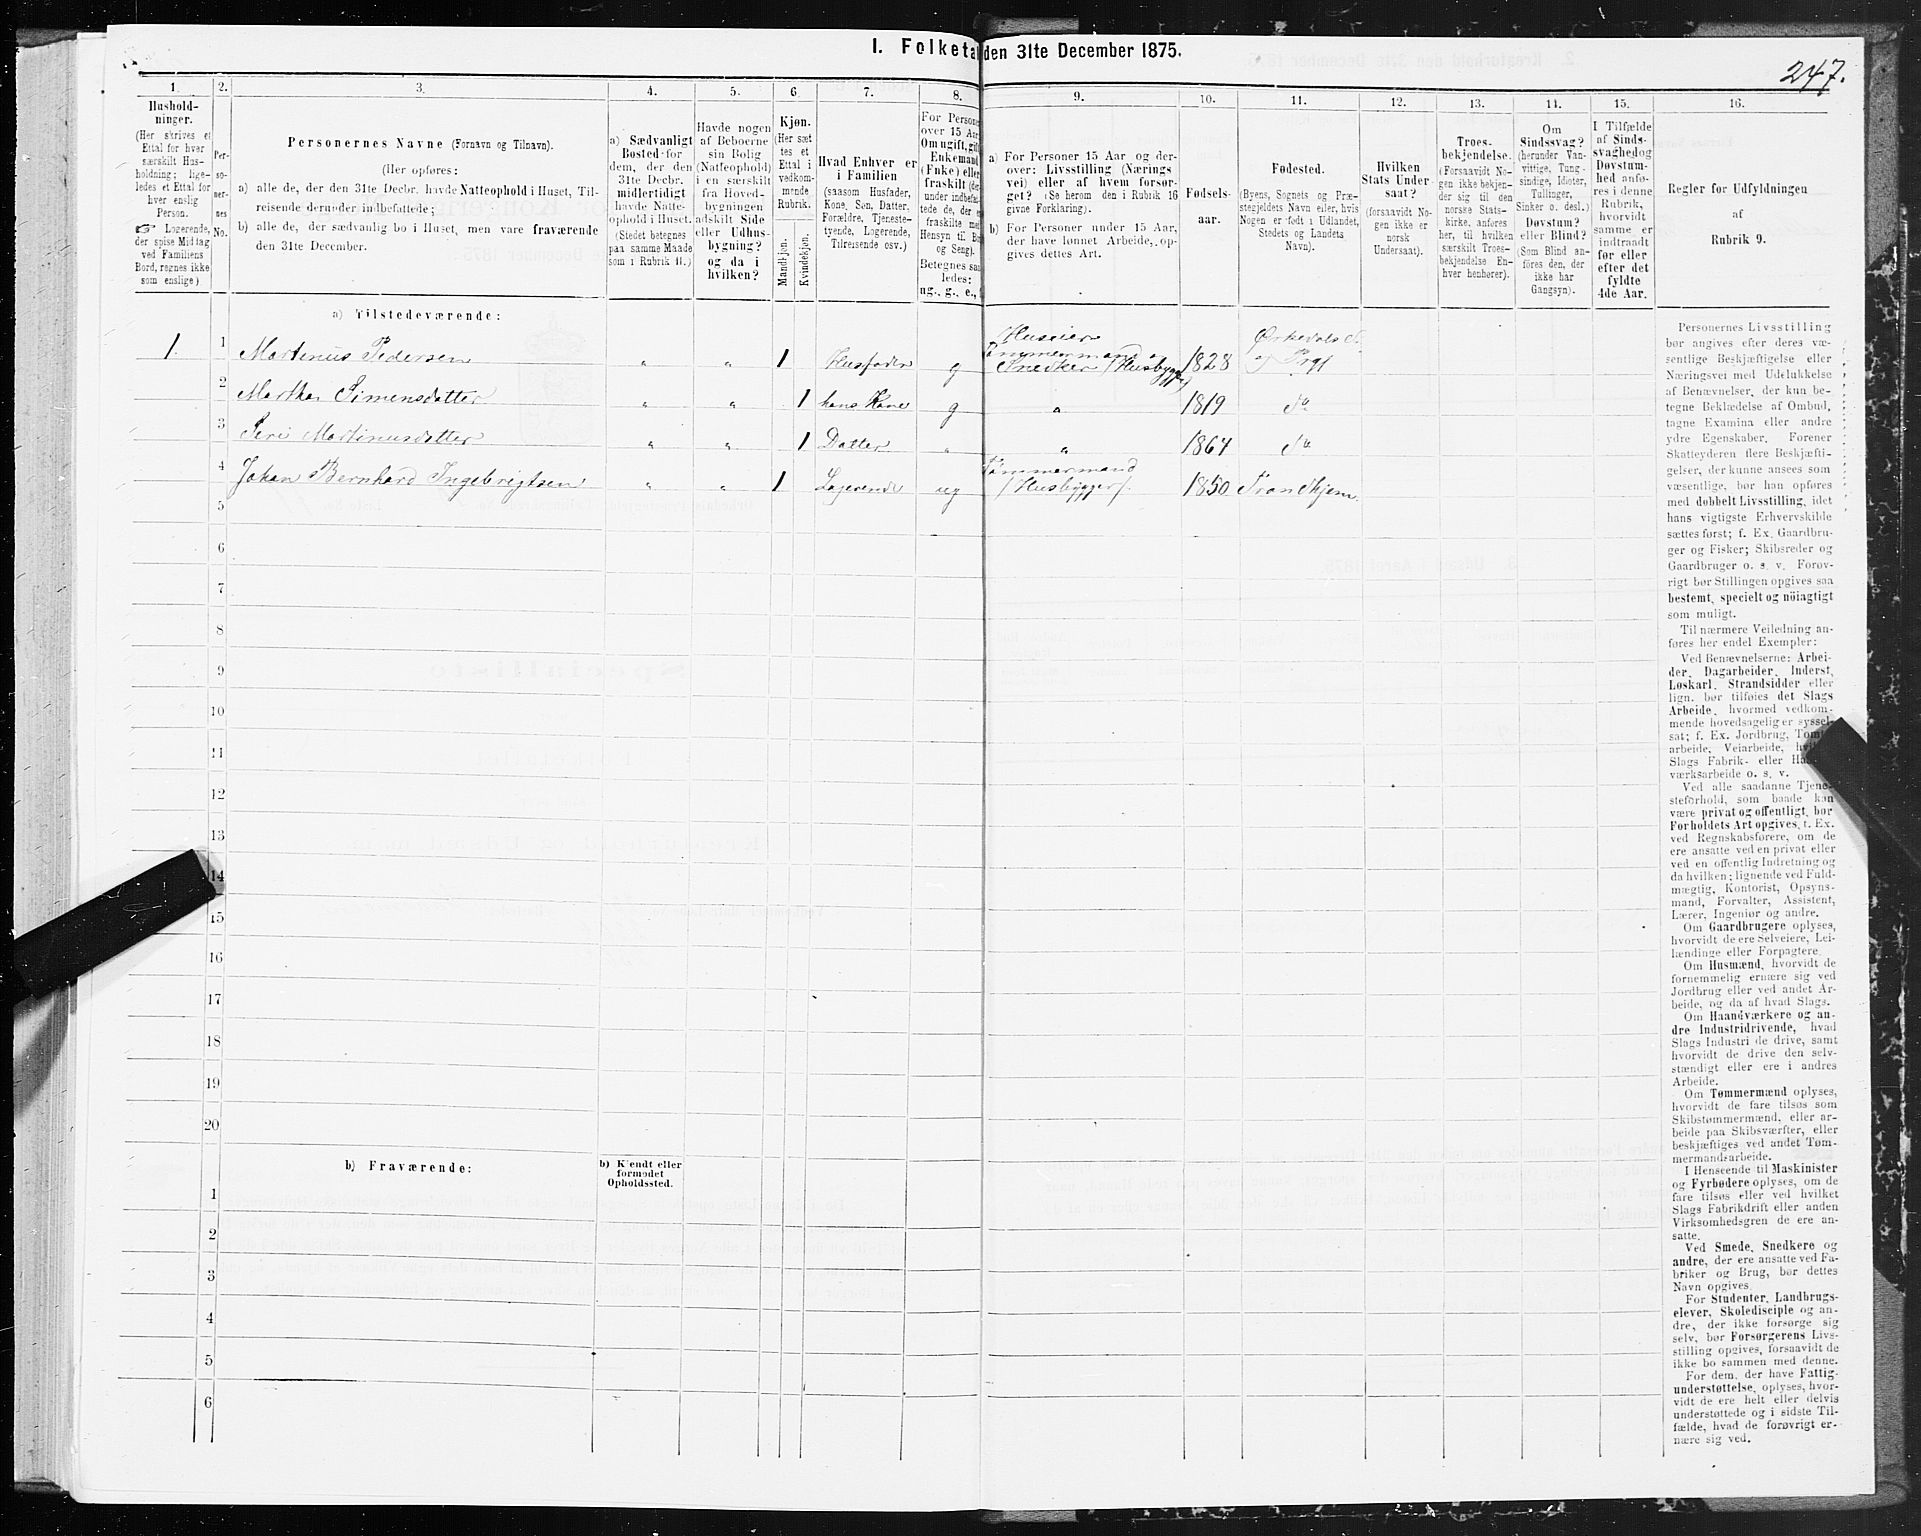 I. Folketal den 31te December 1875.
247.
1. 2. 3. 4. 5. 6. 7. 8. 9. 10. 11. 12. 13. 14. 15. 16.
Hushold-
ninger.
(Her skrives et
Ettal for hver
særskilt Hus-
holdning; lige-
ledes et Ettal for
hver enslig
Person.
☞ Logerende,
der spise Middag
ved Familiens
Bord, regnes ikke
som enslige.)
Per-
so-
ner-
nes
No.
Personernes Navne (Fornavn og Tilnavn).
(Her opføres:
a) alle de, der den 31te Decbr. havde Natteophold i Huset, Til-
reisende derunder indbefattede;
b) alle de, der sædvanlig bo i Huset, men vare fraværende
den 31te December.
a) Sædvanligt
Bosted for
dem, der den
31te Decbr.
midlertidigt
havde Natte-
ophold i Huset.
(Stedet betegnes
paa samme Maade
som i Rubrik 11.)
Havde nogen
af Beboerne
sin Bolig
(Natteophold)
i en særskilt
fra Hoved-
bygningen
adskilt Side
eller Udhus-
bygning?
og da i
hvilken?
Kjøn.
(Her sæt
tes et
Ettal i
vedkom-
mende
Rubrik.
Mandkjøn.
Kvindekjøn.
Hvad Enhver er
i Familien
(saasom Husfader,
Kone, Søn, Datter,
Forældre, Tjeneste-
tyende, Logerende,
Tilreisende osv.)
For Persone
over 15 Aar
Om ugift, gift
Enkemand
(Enke) eller
fraskilt (der-
under indbefat-
tede de, der e
fraskilte med
Hensyn til Bo
og Seng).
Betegnes saa
ledes:
ug., g., e., f
a) For Personer 15 Aar og der-
over: Livsstilling (Nærings
vei) eller af hvem forsør-
get? (Se herom den i Rubrik 16
givne Forklaring).
b) For Personer under 15 Aar,
der have lønnet Arbeide, op-
gives dettes Art.
Fødsels-
aar.
Fødested.
(Byens, Sognets og Præ-
stegjeldets Navn eller, hvis
Nogen er født i Udlandet,
Stedets og Landets
Navn).
Hvilken
Stats Under
saat?
(forsaavidt No-
gen ikke er
norsk
Undersaat).
Troes-
bekjendelse.
(Forsaavidt No-
gen ikke bekjen-
der sig til den
norske Stats-
kirke, anføres
her, til hvilken
særskilt Troes-
bekjendelse En-
hver henhører).
Om
Sindssvag?
(herunder Van-
vittige, Tung-
sindige, Idioter,
Tullinger,
Sinker o. desl.)
Døvstum?
eller Blind?
(Som Blind an-
føres den, der
ikke har
Gangsyn).
I Tilfælde
af Sinds-
svaghed og
Døvstum-
hed anfø-
res i denne
Rubrik,
hvorvidt
samme er
indtraadt
før eller
efter det
fyldte
4de Aar.
Regler for Udfyldningen
af
Rubrik 9.
a) Tilstedeværende:
1 1 Martinus Pedersen " " 1 Husfader g Huseier Tømmermand Snedker (Husbygger) 1828 Ørkedals
2 Martha Simensdatter " " 1 hans Kone g " 1819 do
3 Seri Martinusdatter " " 1 Datter " " 1864 do
4 Johan Bernhard Ingebrigtsen " " 1 Logerende ug Tømmermand (Husbygger). 1850 Trondhjem
5
6
7
8
9
10
11
12
13
14
15
16
17
18
19
20
b) Fraværende:
b) Kjendt eller
formodet
Opholdssted.
1
2
3
4
5
6
Personernes Livsstilling
bør angives efter deres væ-
sentlige Beskjæftigelse eller
Næringsvei med Udelukkelse
af Benævnelser, der kun be-
tegne Beklædelse af Ombud,
tagne Examina eller andre
ydre Egenskaber. Forener
Skatteyderen flere Beskjæfti-
gelser, der kunne ansees som
væsentlige, bør han opføres
med dobbelt Livsstilling, idet
hans vigtigste Erhvervskilde
sættes først; f. Ex. Gaardbru-
ger og Fisker; Skibsreder og
Gaardbruger o. s. v. Forøv-
rigt bør Stillingen opgives saa
bestemt, specielt og nöiagtigt
som muligt.
Til nærmere Veiledning an-
føres her endel Exempler:
Ved Benævnelserne: Arbei-
der, Dagarbeider, Inderst,
Løskarl, Strandsidder eller
lign. bør tilføies det Slags
Arbeide, hvormed vedkom-
mende hovedsagelig er syssel-
sat; f. Ex. Jordbrug, Tomt-
arbeide, Veiarbeide, hvilket
Slags Fabrik- eller Haand-
værksarbeide o. s. v.
Ved alle saadanne Tjene-
steforhold, som baade kan
være privat og offentligt, bør
Forholdets Art opgives, t. Ex.
ved Regnskabsførere, om de
ere ansatte ved en privat eller
ved en offentlig Indretning og
da hvilken; lignende ved Fuld-
mægtig, Kontorist, Opsyns-
mand, Forvalter, Assistent,
Lærer, Ingeniør og andre.
Om Gaardbrugere oplyses,
hvorvidt de ere Selveiere, Lei-
lændinge eller Forpagtere.
Om Husmænd, hvorvidt de
fornemmelig ernære sig ved
Jordbrug eller ved andet Ar-
beide, og da af hvad Slags.
Om Haandværkere og an-
dre Industridrivende, hvad
Slags Industri de drive, samt
hvorvidt de drive den selv-
stændigt eller ere i andres
Arbeide.
Om Tømmermænd oplyses,
hvorvidt de fare tilsøs som
Skibstømmermænd, eller ar-
beide paa Skibsværfter, eller
beskjæftiges ved andet Tøm-
mermandsarbeide.
I Henseende til Maskinister
og Fyrbødere oplyses, om de
fare tilsøs eller ved hvilket
Slags Fabrikdrift eller anden
Virksomhedsgren de ere an-
satte.
Ved Smede, Snedkere og
andre, der ere ansatte ved Fa-
briker og Brug, bør dettes
Navn opgives
For Studenter, Landbrugs-
elever, Skoledisciple og an-
dre, der ikke forsørge sig
selv, bør Forsørgerens Livs-
stilling opgives, forsaavidt de
ikke bo sammen med denne.
For dem, der have Fattig-
understøttelse, oplyses, hvor-
vidt de ere helt eller delvis
understøttede og i sidste Til-
fælde, hvad de forøvrigt er-
nære sig ved.